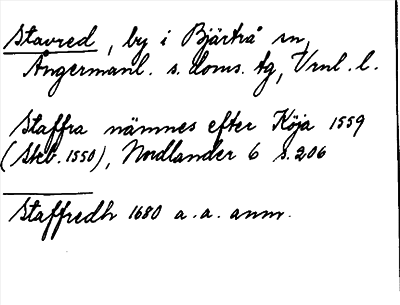 Stavred, by i Bjärtrå sn,
Ångermanl. s. doms. tg, Vrnl. l.
Staffra nämnes efter Köja 1559
(Skb. 1550), Nordlander 6 s. 206
Staffredh 1680 a. a. anm.